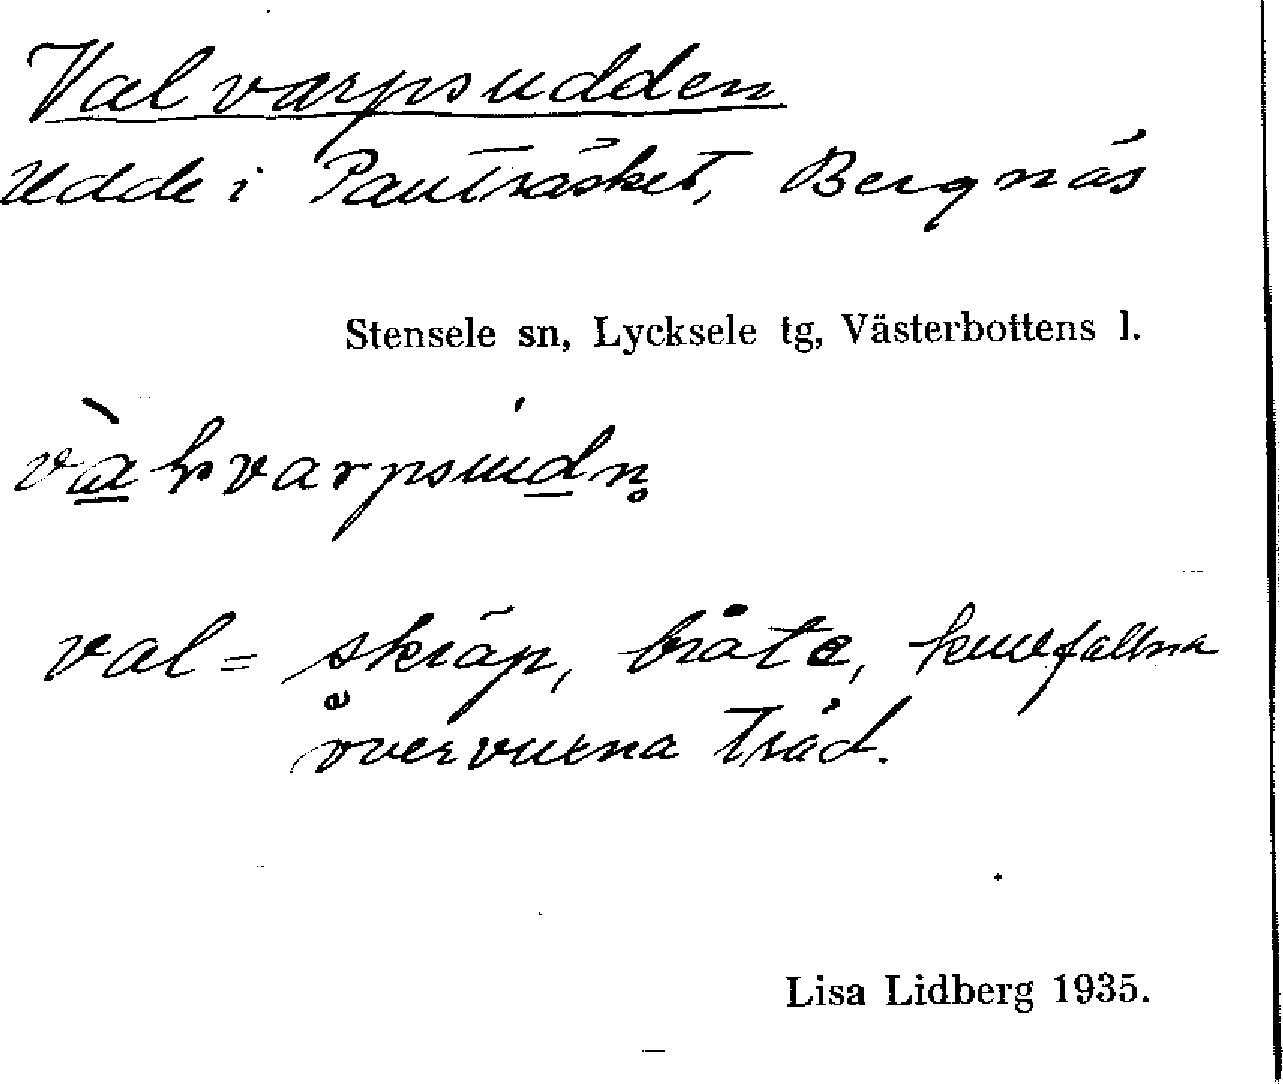 Valvarpsudden
Udde i Pauträsket, Bergnäs
Stensele sn, Lycksele tg, Västerbottens l.
val = skräp, bråte, kullfallna
överväxta träd.
Lisa Lidberg 1935.